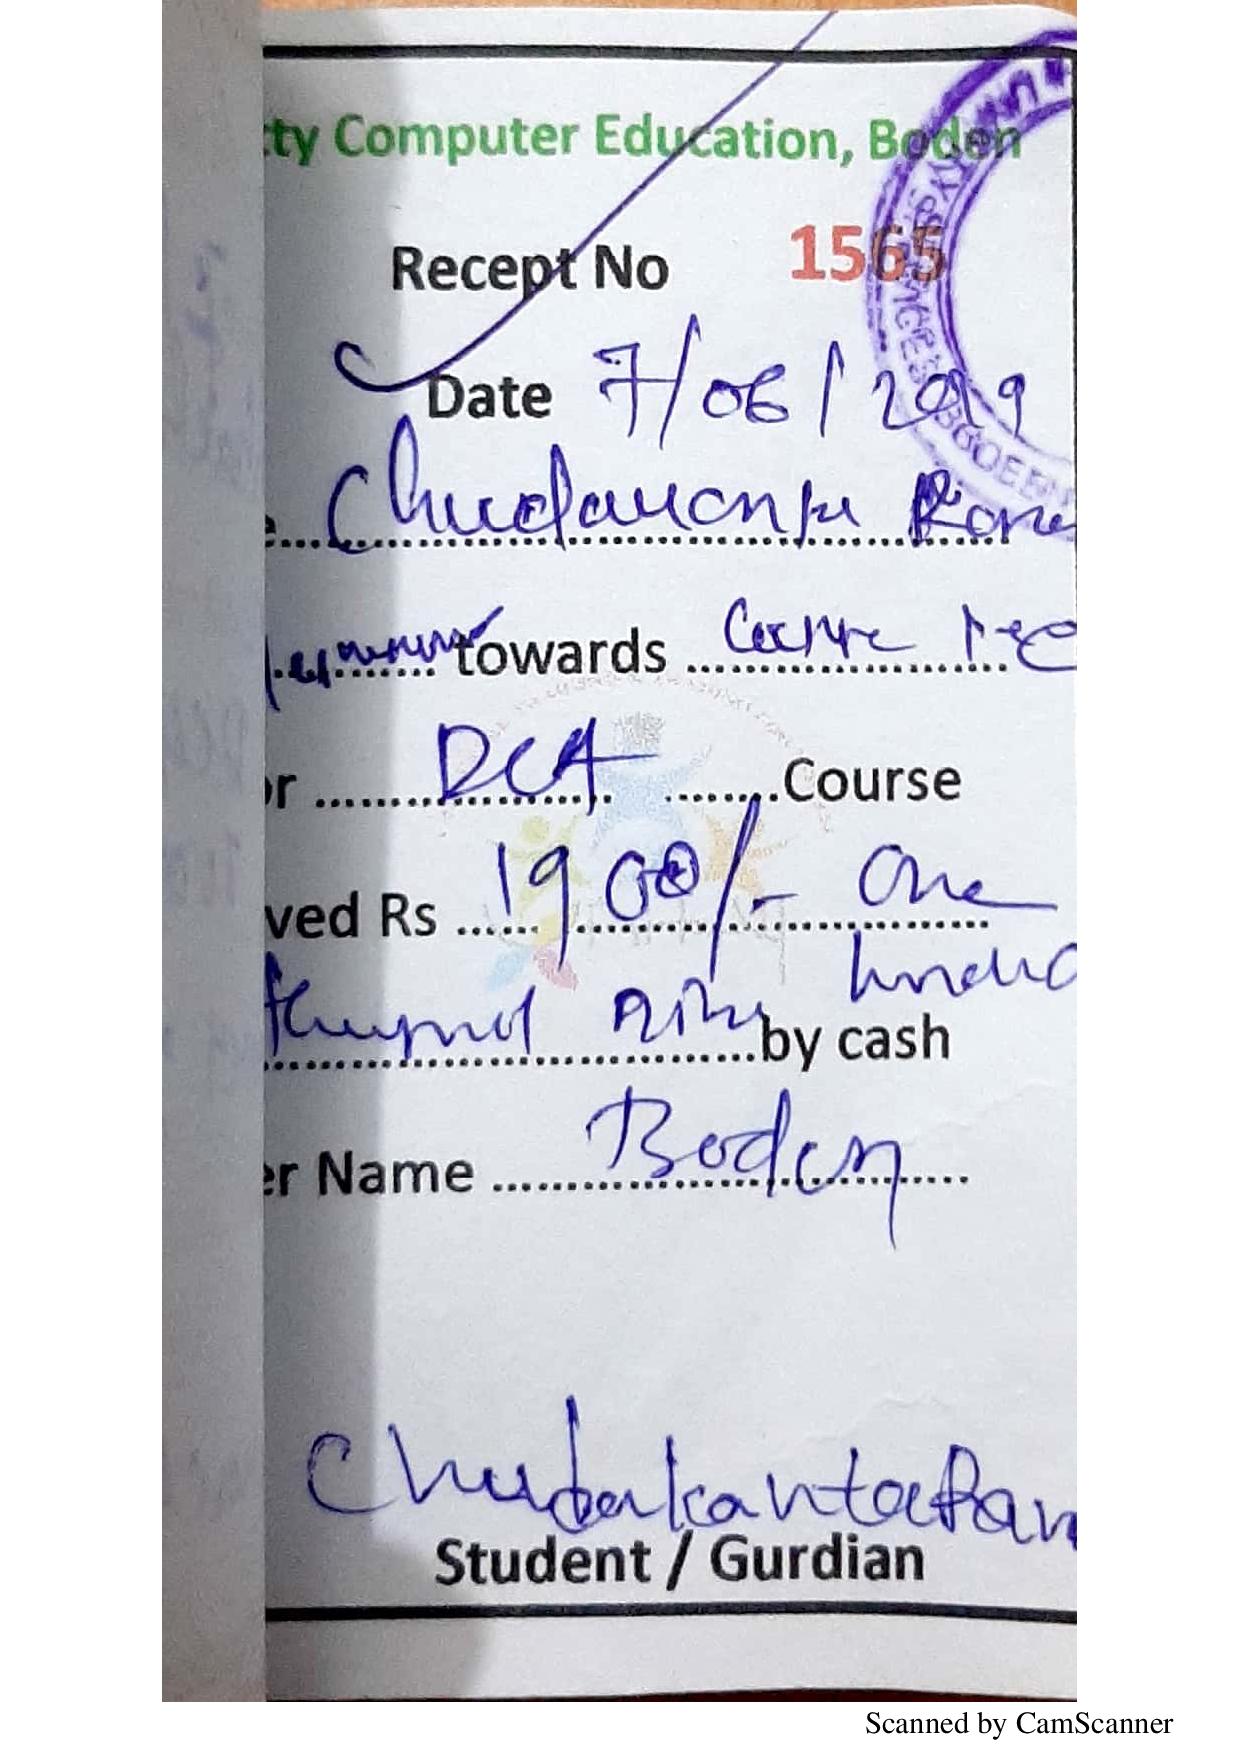 ty Computer Education, Boden
Recept No 1565
Date 7/06/2019
towards Course Fee
r DCA Course
ved Rs 1900/- One
thousand Nine hundred
by cash
er Name Boden
Chudakanta Ran
Student / Gurdian
Scanned by CamScanner